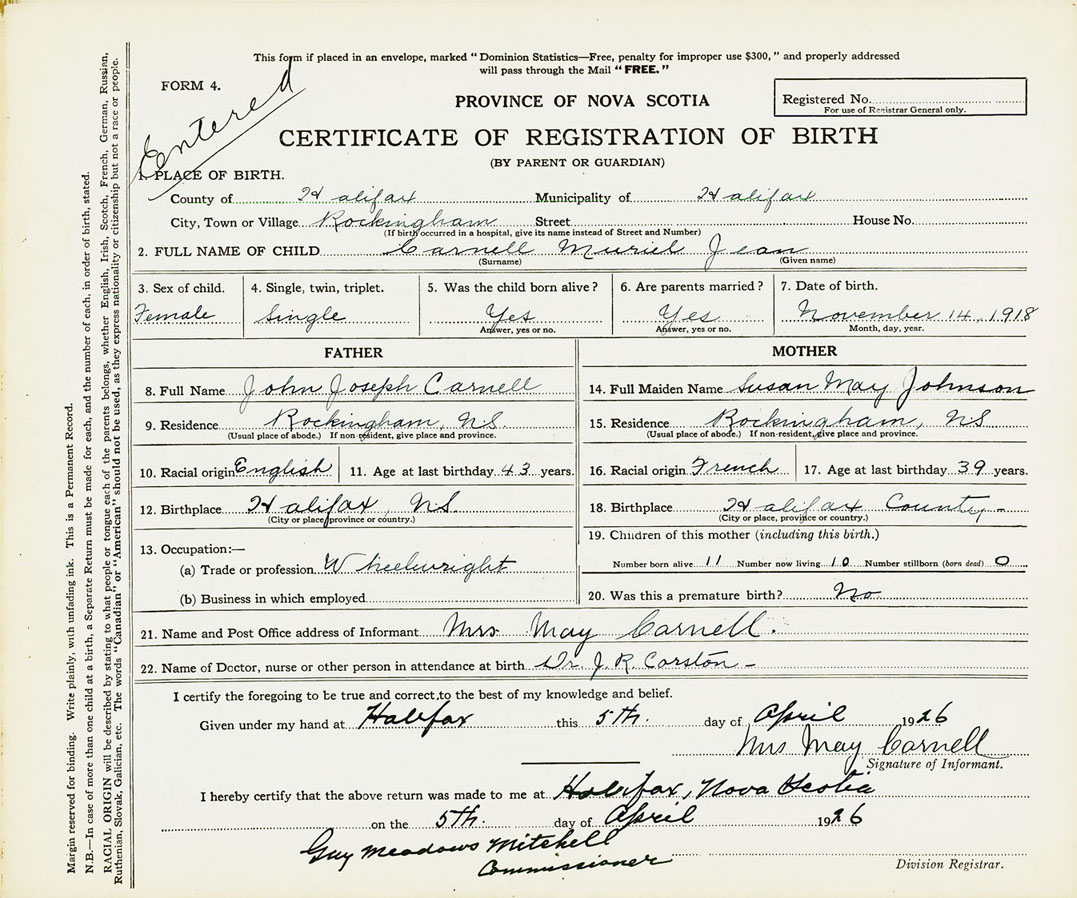 This form if placed in an envelope, marked "Dominion Statistics—Free, penalty for improper use $300," and properly addressed
will pass through the Mail "FREE."
FORM 4.
Entered
PROVINCE OF NOVA SCOTIA
Registered No.
For use of Registrar General only.
CERTIFICATE OF REGISTRATION OF BIRTH
(BY PARENT OR GUARDIAN)
1. PLACE OF BIRTH.
County of Halifax Municipality of Halifax
City, Town or Village Rockingham Street House No.
(If birth occurred in a hospital, give its name instead of Street and Number)
2. FULL NAME OF CHILD Carnell Muriel Jean
(Surname) (Given name)
3. Sex of child. 4. Single, twin, triplet. 5. Was the child born alive? 6. Are parents married? 7. Date of birth.
Female Single Yes Yes November 14, 1918
Answer, yes or no. Answer, yes or no. Month, day, year.
FATHER MOTHER
8. Full Name John Joseph Carnell 14. Full Maiden Name Susan May Johnson
9. Residence Rockingham, NS. 15. Residence Rockingham, NS
(Usual place of abode.) If non-resident, give place and province. (Usual place of abode.) If non-resident, give place and province.
10. Racial origin English 11. Age at last birthday 43 years. 16. Racial origin French 17. Age at last birthday 39 years.
12. Birthplace Halifax, NS. 18. Birthplace Halifax County -
(City or place, province or country.) (City or place, province or country.)
13. Occupation:— 19. Children of this mother (including this birth.)
(a) Trade or profession Wheelwright Number born alive 11 Number now living 10 Number stillborn (born dead) 0
(b) Business in which employed 20. Was this a premature birth? No
21. Name and Post Office address of Informant Mrs May Carnell.
22. Name of Doctor, nurse or other person in attendance at birth Dr. J. R. Corston -
I certify the foregoing to be true and correct, to the best of my knowledge and belief.
Given under my hand at Halifax this 5th. day of April 1926
Mrs May Carnell
Signature of Informant.
I hereby certify that the above return was made to me at Halifax, Nova Scotia
on the 5th. day of April 1926
Guy Meadows Mitchell
Commissioner
Division Registrar.
Margin reserved for binding. Write plainly, with unfading ink. This is a Permanent Record.
N.B.—In case of more than one child at a birth, a Separate Return must be made for each, and the number of each, in order of birth, stated.
RACIAL ORIGIN will be described by stating to what people or tongue each of the parents belongs, whether English, Irish, Scotch, French, German, Russian,
Ruthenian, Slovak, Galician, etc. The words "Canadian" or "American" should not be used, as they express nationality or citizenship but not a race or people.